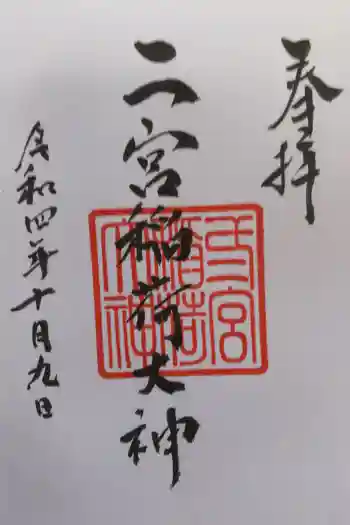 奉拝
二宮稲荷大神
令和四年十月九日
宮
稲荷
大神